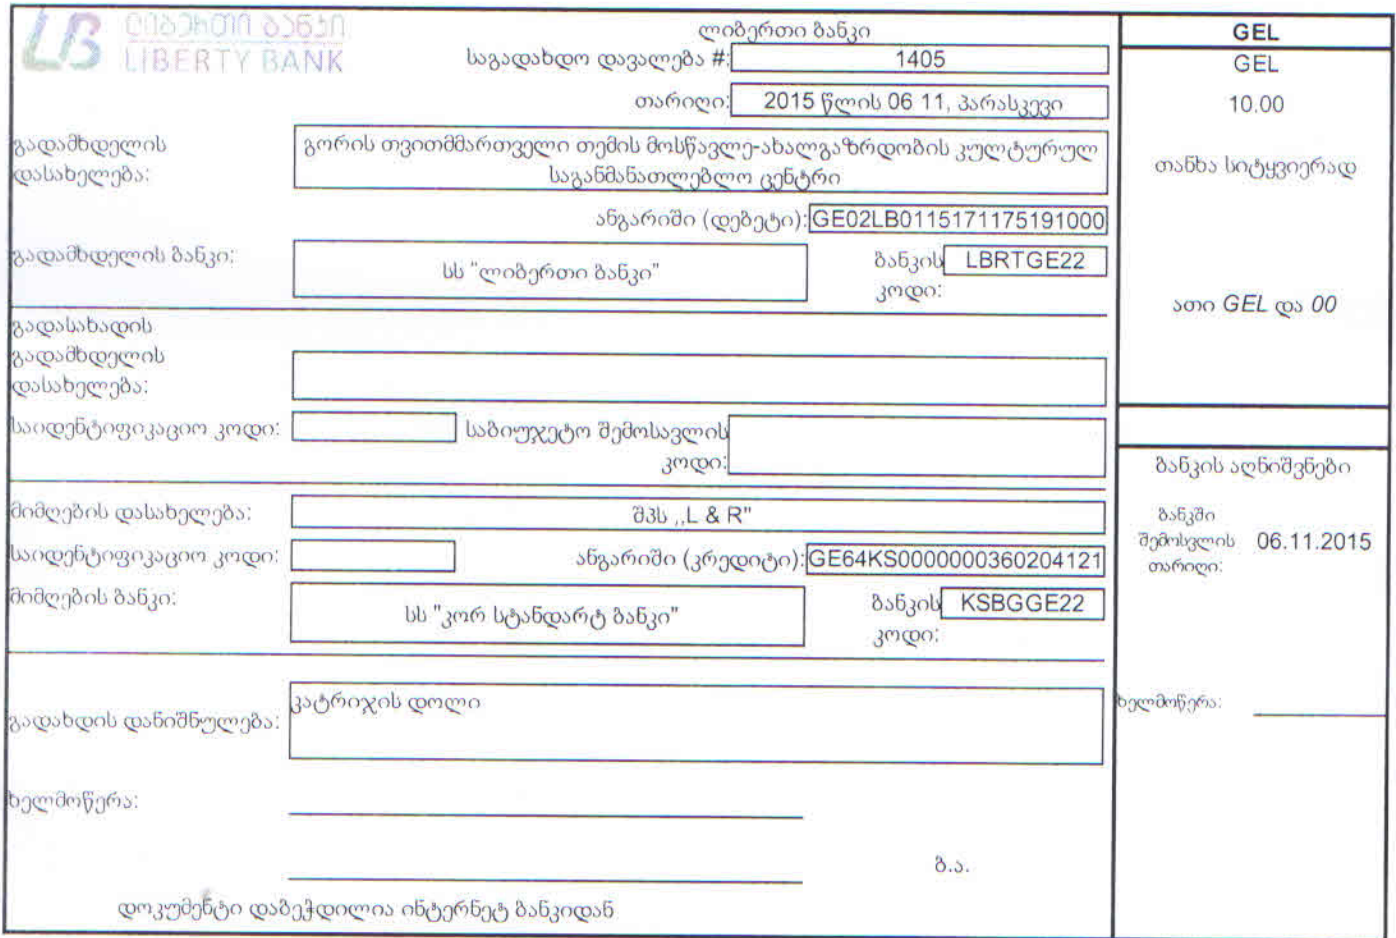 ლიბერთი ბანკი
LIBERTY BANK
ლიბერთი ბანკი
საგადახდო დავალება #: 1405
თარიღი: 2015 წლის 06 11, პარასკევი
გადამხდელის
დასახელება:
გორის თვითმმართველი თემის მოსწავლე-ახალგაზრდობის კულტურულ
საგანმანათლებლო ცენტრი
ანგარიში (დებეტი): GE02LB0115171175191000
გადამხდელის ბანკი:
სს "ლიბერთი ბანკი"
ბანკის LBRTGE22
კოდი:
გადასახადის
გადამხდელის
დასახელება:
საიდენტიფიკაციო კოდი:
საბიუჯეტო შემოსავლის
კოდი:
მიმღების დასახელება: შპს ,,L & R"
საიდენტიფიკაციო კოდი:
ანგარიში (კრედიტი): GE64KS0000000360204121
მიმღების ბანკი:
სს "კორ სტანდარტ ბანკი"
ბანკის KSBGGE22
კოდი:
კატრიჯის დოლი
გადახდის დანიშნულება:
ხელმოწერა:
ბ.ა.
დოკუმენტი დაბეჭდილია ინტერნეტ ბანკიდან
GEL
GEL
10.00
თანხა სიტყვიერად
ათი GEL და 00
ბანკის აღნიშვნები
ბანკში
შემოსვლის 06.11.2015
თარიღი:
ხელმოწერა: